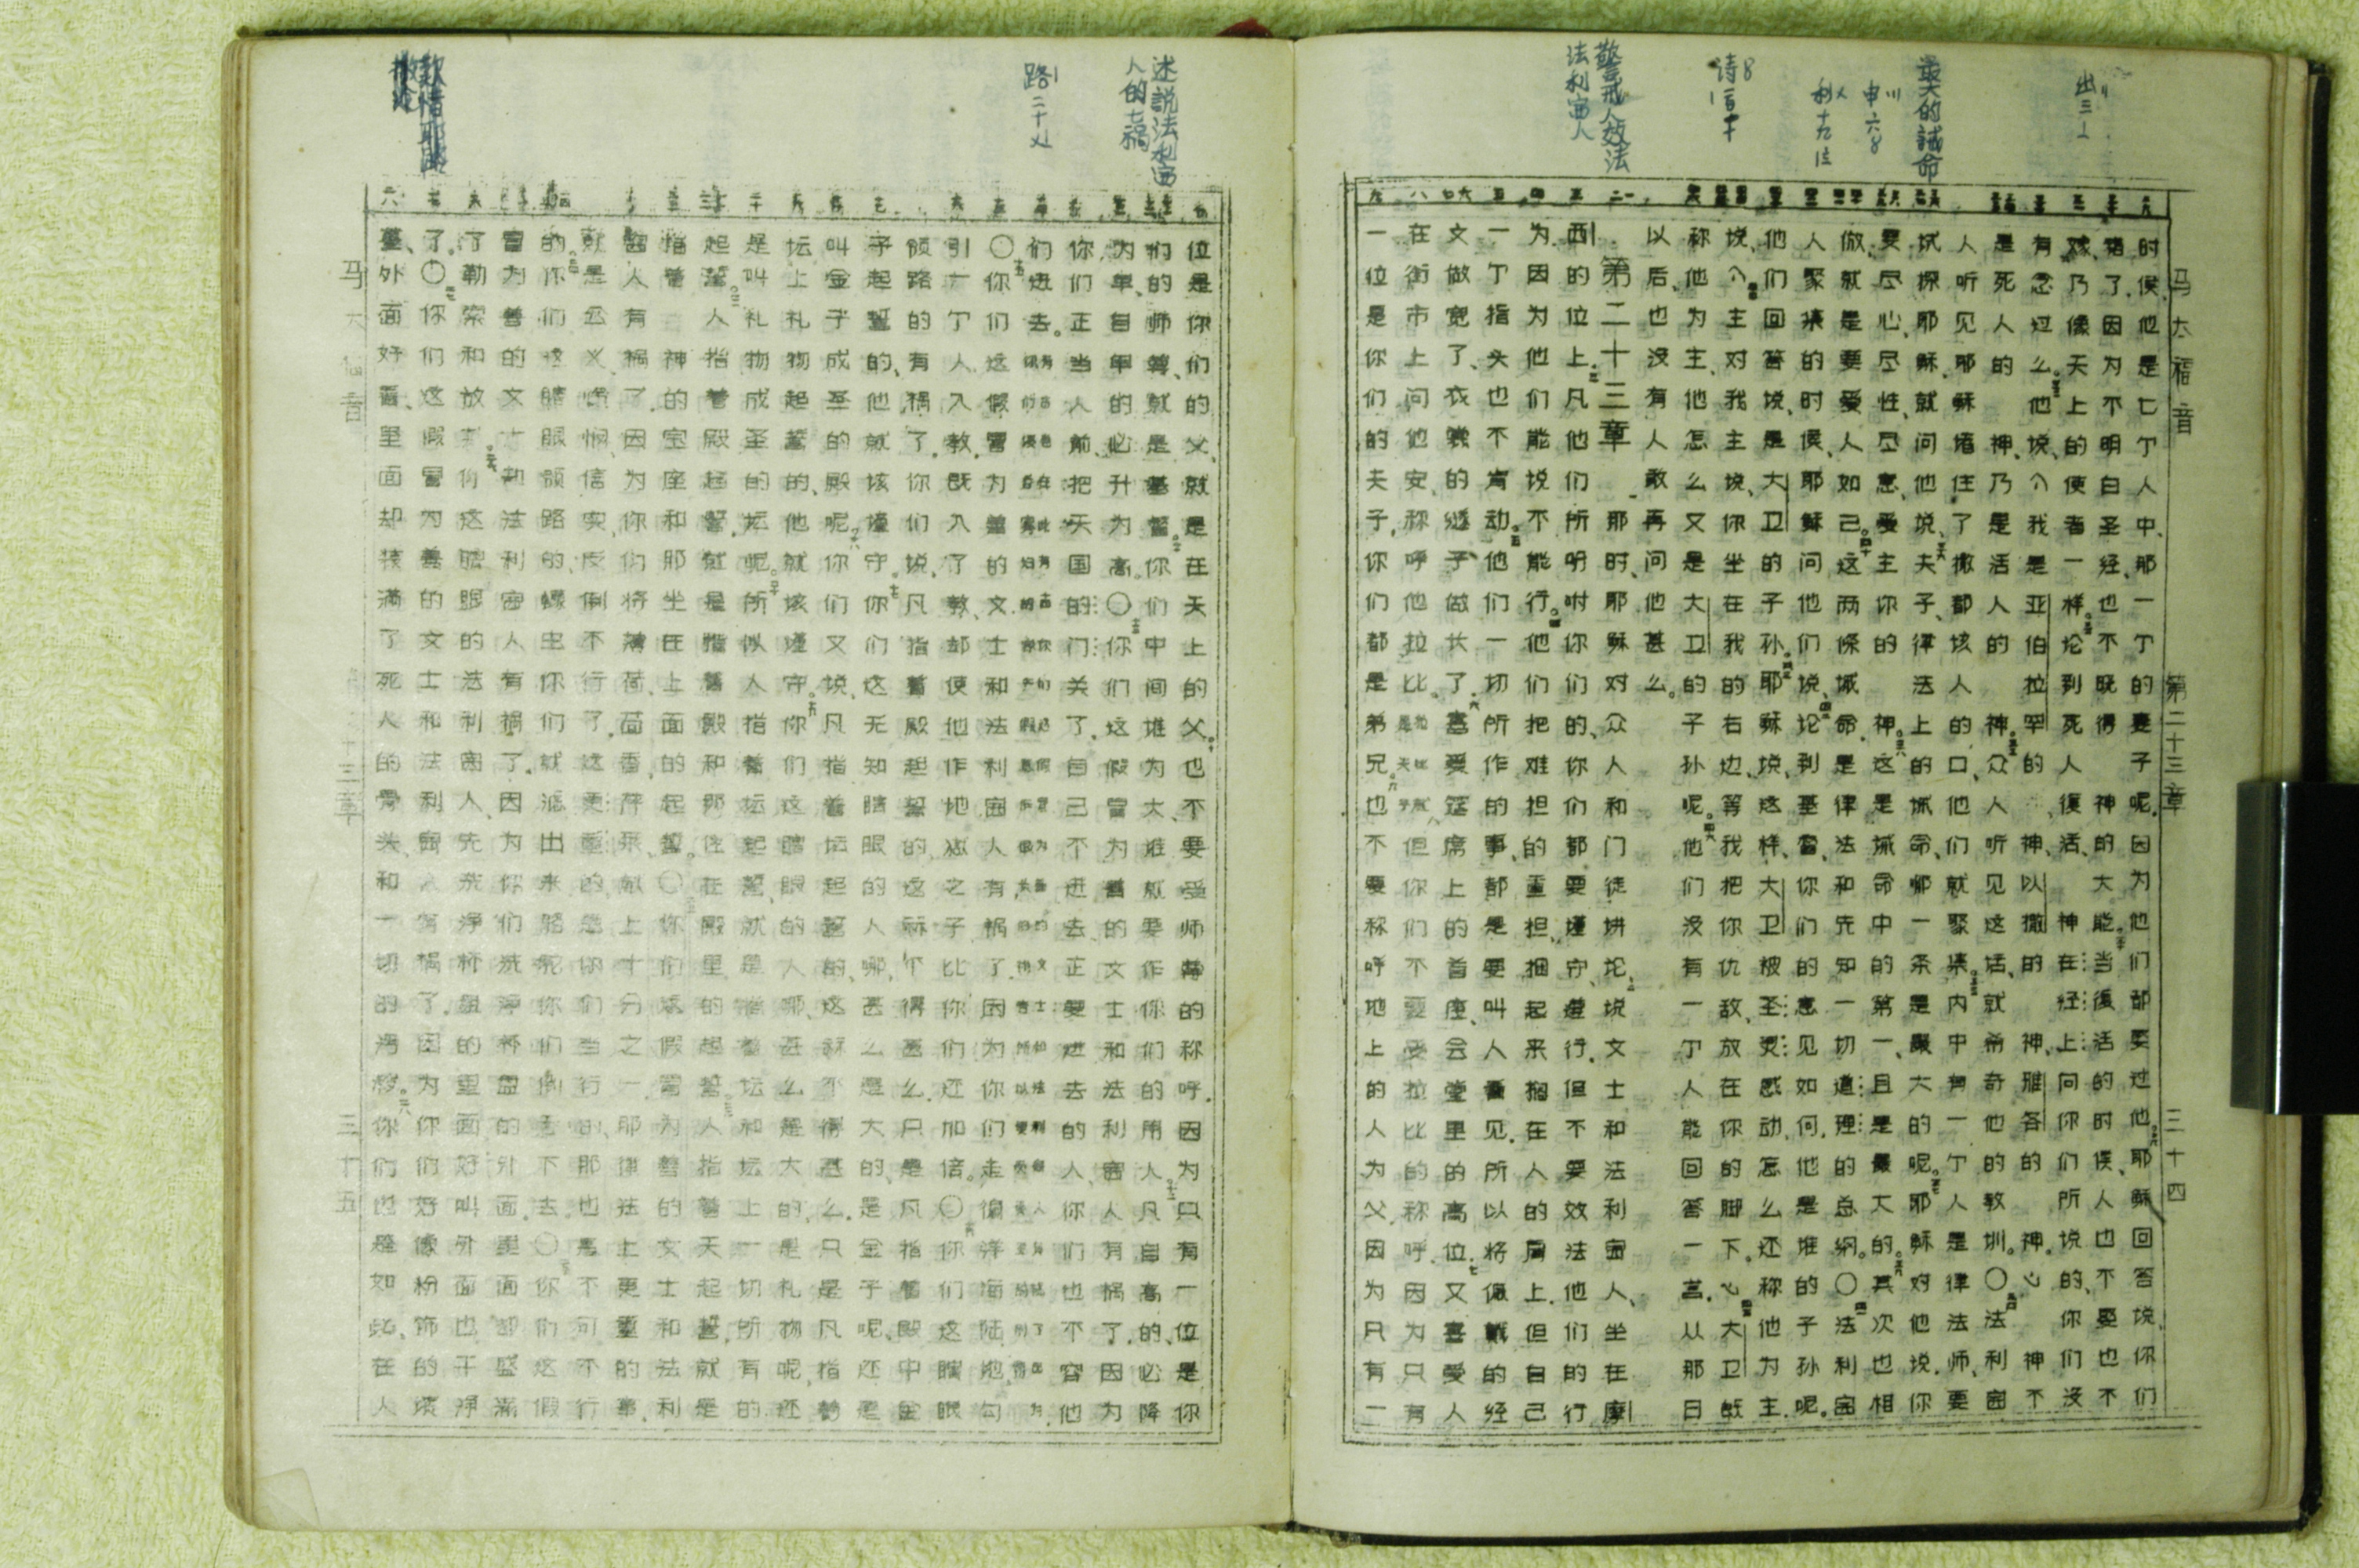 出三
最大的誡命
申六
利十九
诗百十
警戒人效法
法利賽人
马太福音 第二十三章 三十四
时候、他是七亇人中、那一亇的妻子呢。因为他们都娶过他。二九耶稣回答说、你们
错了。因为不明白圣经、也不晓得 神的大能。三十当復活的时候、人也不娶也不
嫁、乃像天上的使者一样。三一论到死人復活、 神在经上向你们所说的、你们没
有念过么。三二他说、我是亚伯拉罕的 神、以撒的 神、雅各的 神。 神不
是死人的 神、乃是活人的 神。三三众人听见这话、就希奇他的教训。○三四法利赛
人听见耶稣堵住了撒都该人的口、他们就聚集。三五内中有一亇人是律法师、要
试探耶稣、就问他说、三六夫子、律法上的诫命、哪一条是最大的呢。三七耶稣对他说、你
要尽心、尽性、尽意、爱主你的 神。三八这是诫命中的第一、且是最大的。三九其次也相
倣、就是要爱人如己。四十这两条诫命、是律法和先知一切道理的总纲。○四一法利赛
人聚集的时候、耶稣问他们说、四二论到基督、你们的意见如何、他是谁的子孙呢。
他们回答说、是大卫的子孙。四三耶稣说、这样、大卫被圣灵感动、怎么还称他为主
说、四四主对我主说、你坐在我的右边、等我把你仇敌、放在你的脚下。四五大卫既
称他为主、他怎么又是大卫的子孙呢。四六他们没有一亇人能回答一言。从那日
以后、也没有人敢再问他甚么。
第二十三章
那时、耶稣对众人和门徒讲论、二说文士和法利赛人、坐在摩
西的位上。三凡他们所吩咐你们的、你们都要谨守遵行。但不要效法他们的行
为。因为他们能说不能行。四他们把难担的重担、捆起来搁在人的肩上。但自己
一亇指头也不肯动。五他们一切所作的事、都是要叫人看见。所以将佩戴的经
文做宽了、衣裳的繸子做长了。六喜爱筵席上的首座、会堂里的高位。七又喜爱人
在街市上问他安、称呼他拉比。八但你们不要受拉比的称呼。因为只有
一位是你们的夫子。你们都是弟兄。九也不要称呼地上的人为父。因为只有一
述説法利賽
人的七禍
路
马太福音 十三章 三十五
位是你们的父、就是在天上的父。十也不要受师尊的称呼。因为只有一位是你
们的师尊、就是基督。十一你们中间谁为大、谁就要作你们的用人。十二凡自高的、必降
为卑。自卑的、必升为高。○十三你们这假冒为善的文士和法利赛人有祸了。因为
你们正当人前、把天国的门关了。自己不进去、正要进去的人、你们也不容他
们进去。
○十五你们这假冒为善的文士和法利赛人有祸了。因为你们走徧洋海陆地、勾
引一亇人入教。既入了教、却使他作地狱之子、比你们还加倍。○十六你们这瞎眼
领路的有祸了。你们说、凡指着殿起誓的、这祘不得甚么。只是凡指着殿中金
子起誓的、他就该谨守。十七你们这无知瞎眼的人哪、甚么是大的、是金子呢、还是
叫金子成圣的殿呢。十八你们又说、凡指着坛起誓的、这祘不得甚么。只是凡指着
坛上礼物起誓的、他就该谨守。十九你们这瞎眼的人哪、甚么是大的、是礼物呢、还
是叫礼物成圣的坛呢。二十所以人指着坛起誓、就是指着坛和坛上一切所有的
起誓。二一人指着殿起誓、就是指着殿和那住在殿里的起誓。二二人指着天起誓、就是
指着 神的宝座和那坐在上面的起誓。○二三你们这假冒为善的文士和法利
赛人有祸了。因为你们将薄荷、茴香、芹菜、献上十分之一。那律法上更重的事、
就是公义、怜悯、信实、反倒不行了。这更重的是你们当行的。那也是不可不行
的。二四你们这瞎眼领路的、蠓虫你们就滤出来、骆驼你们倒吞下去。○二五你们这假
冒为善的文士和法利赛人有祸了。因为你们洗净杯盘的外面、里面却盛满
了勒索和放荡。二六你这瞎眼的法利赛人、先洗净杯盘的里面、好叫外面也干净
了。○二七你们这假冒为善的文士和法利赛人有祸了。因为你们好像粉饰的坟
墓、外面好看、里面却装满了死人的骨头、和一切的污秽。二八你们也是如此、在人